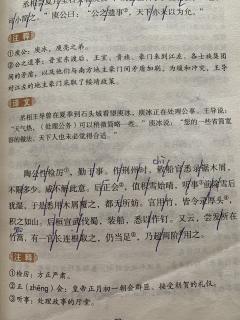 可小简之。"庾公曰："公之遗事，天下亦未以为允。"
注释
①庾公：庾冰，庾亮之弟。
②公之遗事：晋室东渡后，王
间的矛盾，以及他们与南方地主豪门间矛盾加剧，为缓和冲突，王导
对江左的地主豪门采取了倾靖政策。
译文
丞相王导曾在夏季到石头城看望庾冰，庾冰正在处理公事。王导说：
"天气热，(处理公务)可以稍微简略一些。"庾冰说："您的一些省简宽
容的做法，天下人也未必觉得合适。"
陶公性检厉①，勤于事。作荆州时，敕船官悉录锯木屑，
chì
不限多少。咸不解此意。后正会②，值积雪始晴，听事③前除雪后
犹湿，于是悉用木屑覆之，都无所妨。官用竹，皆令录厚头，
积之如山。后桓宣武伐蜀，装船，悉以作钉。又云，尝发所在
竹篙，有一官长连根取之，仍当足④，乃超两阶用之。
注释
①检厉：方正严肃。
②正（zhēng）会：皇帝正月初一朝会群臣，接受朝贺的礼仪。
③听事：处理政事的厅堂。